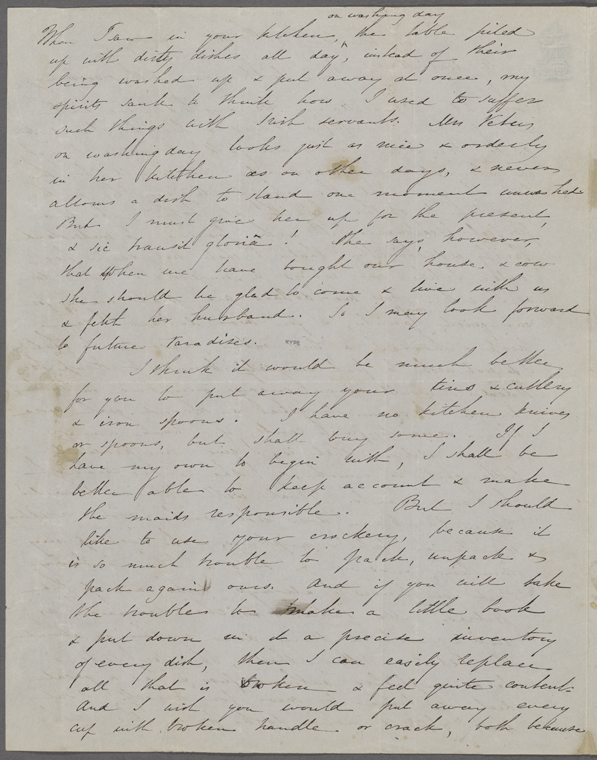 on washing day
When I saw in your kitchen, the table piled
up with dirty dishes all day, instead of their
being washed up & put away at once, my
spirits sank to think how I used to suffer
such things with Irish servants. Mrs Peters
on washing day looks just as nice & orderly
in her kitchen as on other days, & never
allows a dish to stand one moment unwashed
But I must give her up for the present,
& sic transit gloria! She says, however,
that when we have bought our house, & cow
she should be glad to come & live with us
& fetch her husband. So I may look forward
to future Paradises.
I think it would be much better
for you to put away your tins & cutlery
& iron spoons. I have no kitchen knives
or spoons, but shall buy some. If I
have my own to begin with, I shall be
better able to keep account & make
the maids responsible. But I should
like to use your crockery, because it
is so much trouble to pack, unpack &
pack again ours. And if you will take
the trouble to make a little book
& put down in it a precise inventory
of every dish, then I can easily replace
all that is broken & feel quite content.
And I wish you would put away every
cup with broken handle or crack, both because